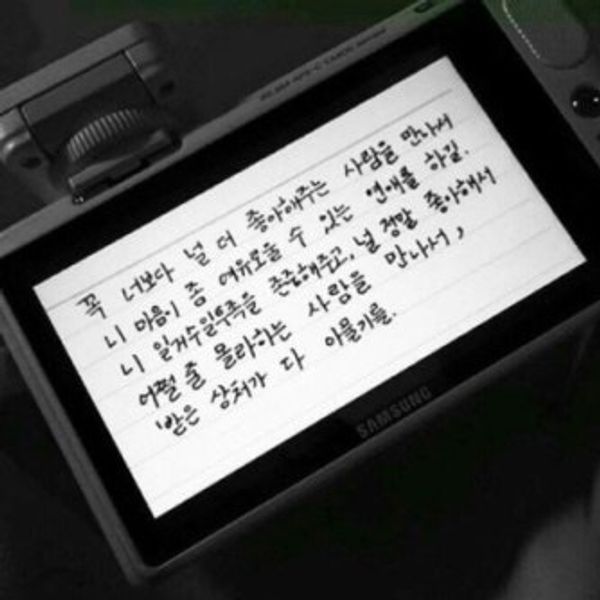 꼭 너보다 널 더 좋아해주는 사람을 만나서
니 마음이 좀 여유로울 수 있는 연애를 하길.
니 일거수일투족을 존중해주고, 널 정말 좋아해서
어쩔 줄 몰라하는 사람을 만나서,
받은 상처가 다 아물기를.
SAMSUNG